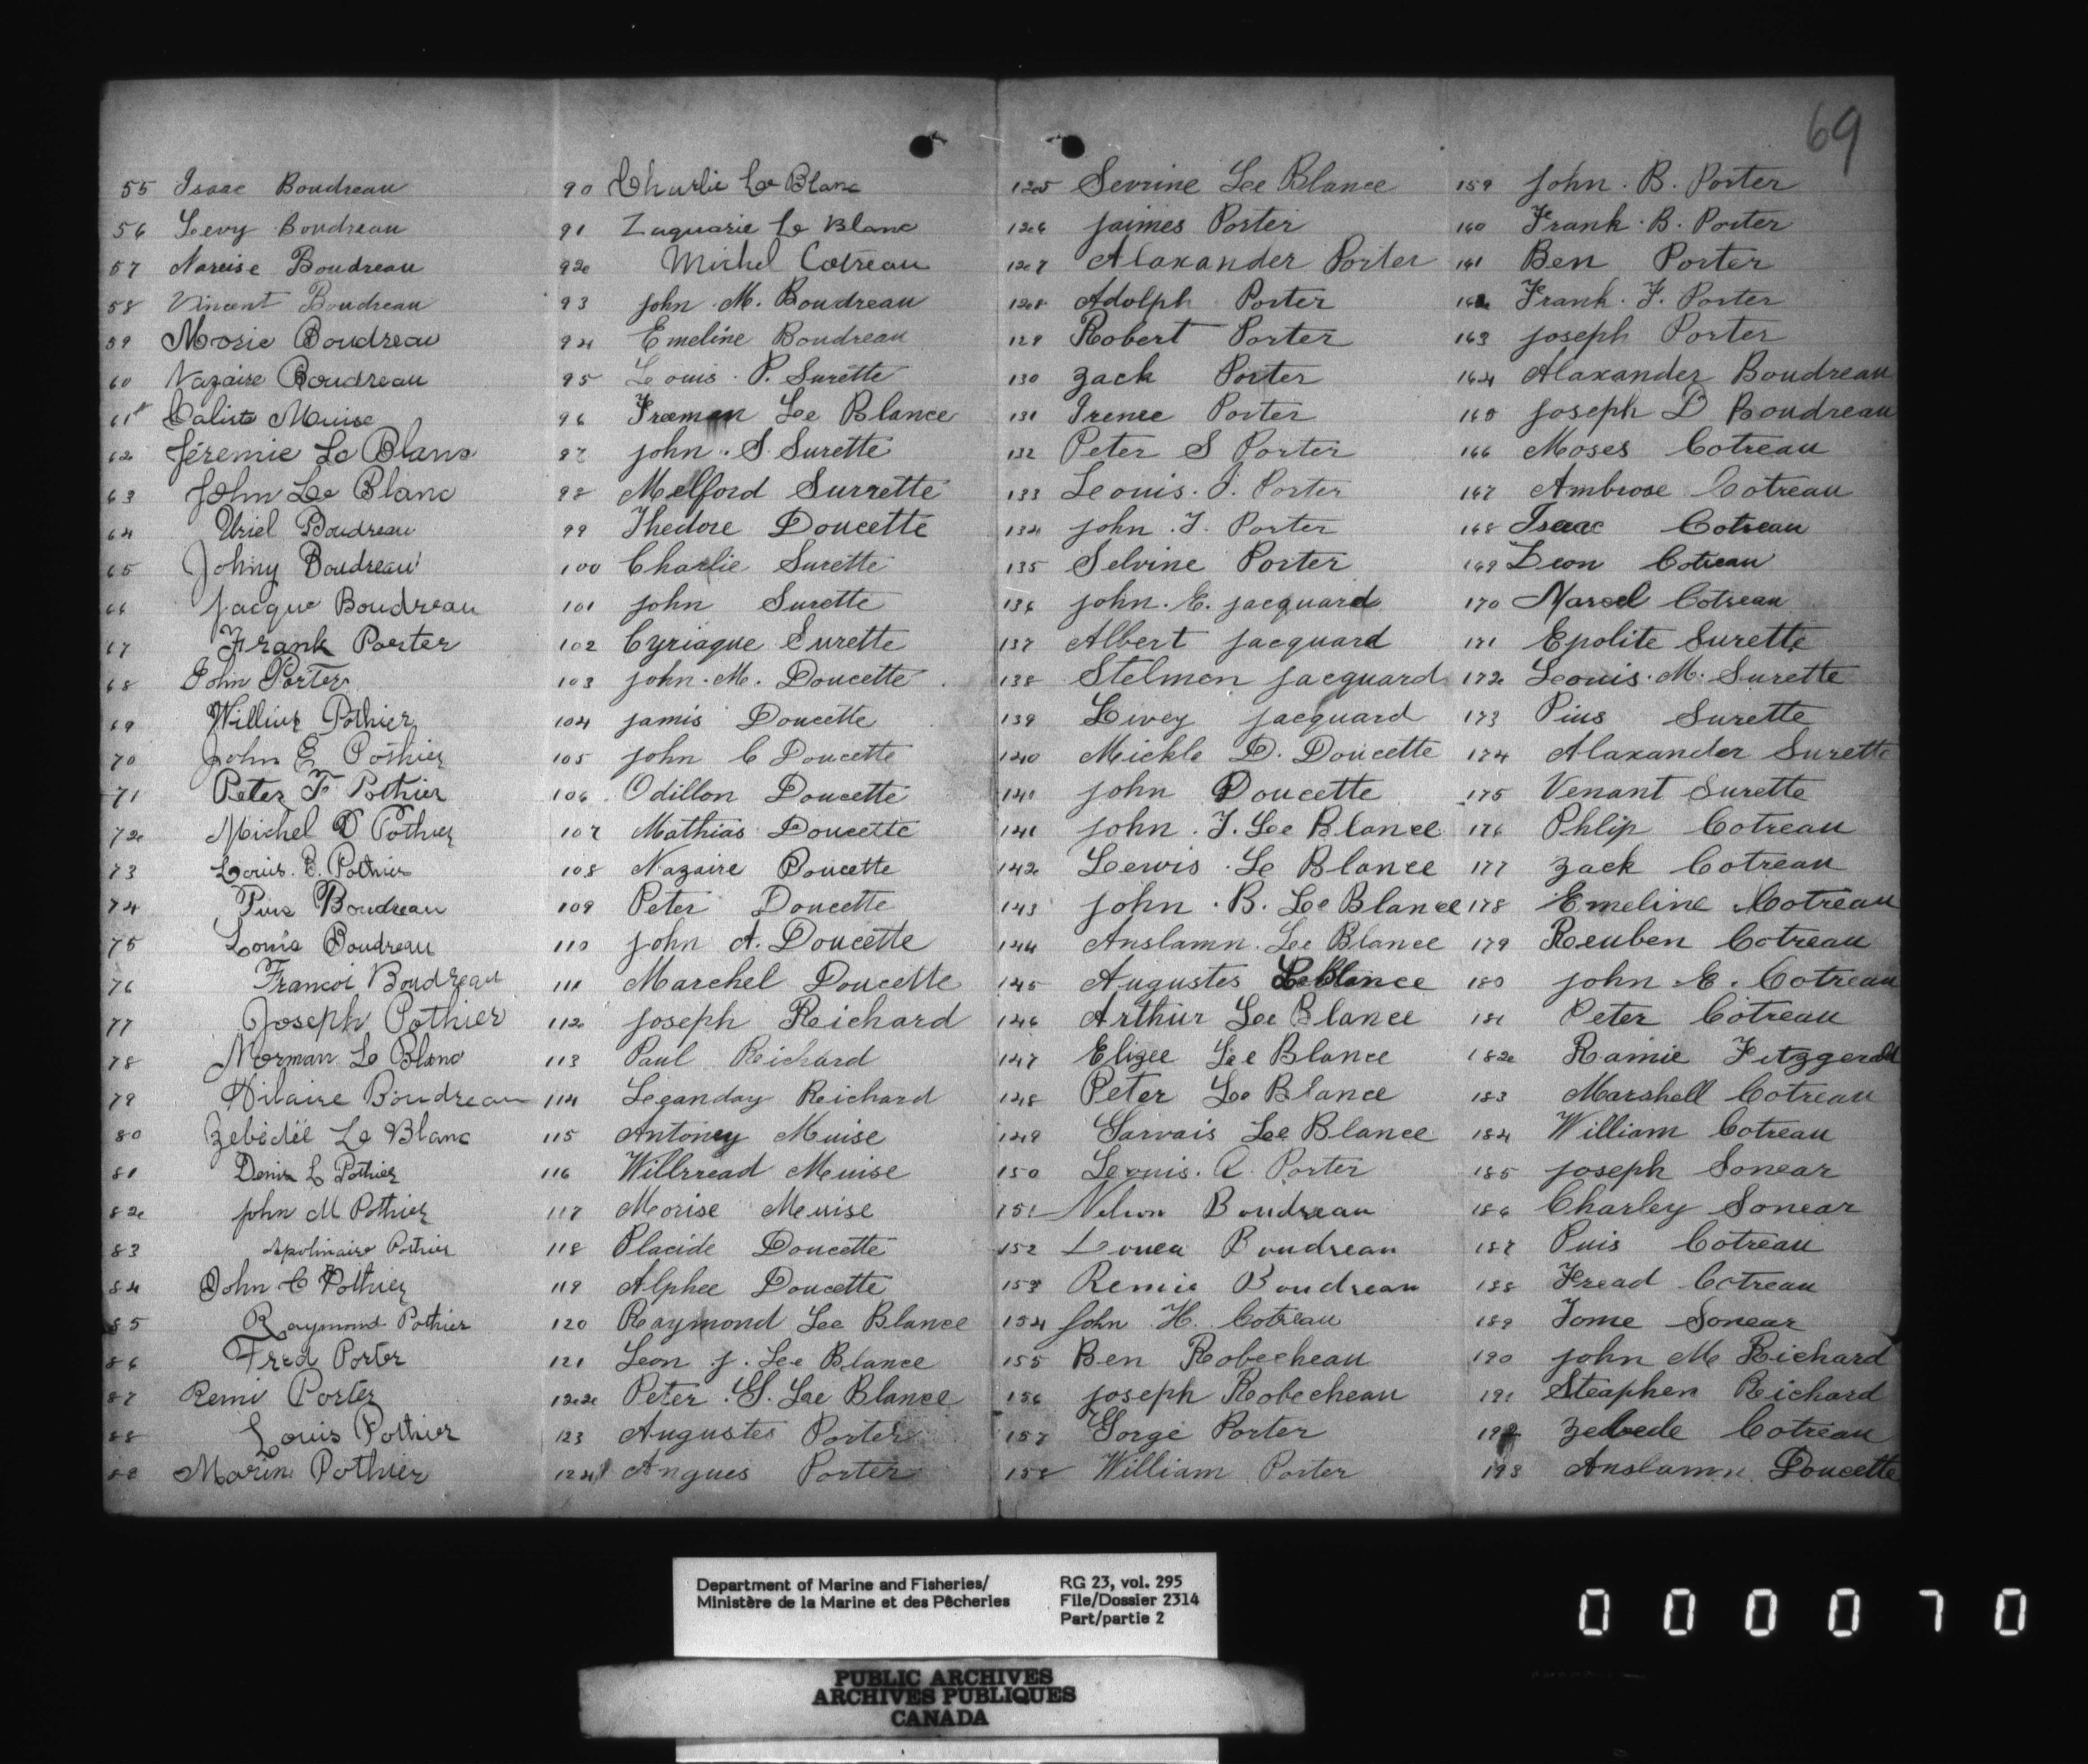 69
55 Isaac Boudreau
56 Levy Boudreau
57 Narcise Boudreau
58 Vincent Boudreau
59 Mosie Boudreau
60 Nazaire Boudreau
61 Caliste Muise
62 Jéremie Le Blanc
63 John Le Blanc
64 Uriel Boudreau
65 Johny Boudreau
66 Jacque Boudreau
67 Frank Porter
68 John Porter
69 Pothier
70 John E Pothier
71 Peter F Pothier
72 Michel D Pothier
73 Louis. E. Pothier
74 Pius Boudreau
75 Louis Boudreau
76 Francoi Boudreau
77 Joseph Pothier
78 Norman Le Blanc
79 Hilaire Boudreau
80 Zebédée Le Blanc
81 Denis L Pothier
82 John M Pothier
83 Apolinaire Pothier
84 John C Pothier
85 Raymond Pothier
86 Fred Porter
87 Remi Porter
88 Louis Pothier
89 Marine Pothier
90 Charlie Le Blanc
91 Zaquarie Le Blanc
92 Michel Cotreau
93 John M. Boudreau
94 Emeline Boudreau
95 Louis P. Surette
96 Freeman Lee Blance
97 John S. Surette
98 Melford Surrette
99 Thedore Doucette
100 Charlie Surette
101 John Surette
102 Cyriaque Surette
103 John M. Doucette
104 Jamis Doucette
105 John C Doucette
106 Odillon Doucette
107 Mathias Doucette
108 Nazaire Doucette
109 Peter Doucette
110 John A. Doucette
111 Marchel Doucette
112 Joseph Reichard
113 Paul Reichard
114 Leganday Reichard
115 Antoney Muise
116 Willrread Muise
117 Morise Muise
118 Placide Doucette
119 Alphee Doucette
120 Raymond Lee Blance
121 Leon J. Lee Blance
122 Peter G. Lee Blance
123 Augustes Porter
124 Angues Porter
125 Sevrine Lee Blance
126 Jaimes Porter
127 Alaxander Porter
128 Adolph Porter
129 Robert Porter
130 Zack Porter
131 Irenee Porter
132 Peter S Porter
133 Leouis. J. Porter
134 John J. Porter
135 Selvine Porter
136 John. E. Jacquard
137 Albert Jacquard
138 Stelmen Jacquard
139 Livey Jacquard
140 Mickle D. Doucette
140 John Doucette
141 John J. Lee Blance
142 Leewis Le Blance
143 John B. Le Blance
144 Anslamn Lee Blance
145 Augustes Le Blance
146 Arthur Lee Blance
147 Elizee Lee Blance
148 Peter Lee Blance
149 Garvais Lee Blance
150 Leouis. A. Porter
151 Nelson Boudreau
152 Boudreau
153 Remie Boudreau
154 John H. Cotreau
155 Ben Robecheau
156 Joseph Robecheau
157 Gorge Porter
158 William Porter
159 John B. Porter
160 Frank B. Porter
161 Ben Porter
162 Frank F. Porter
163 Joseph Porter
164 Alaxander Boudreau
165 Joseph D Boudreau
166 Moses Cotreau
167 Ambrose Cotreau
168 Isaac Cotreau
169 Leon Cotreau
170 Marcel Cotreau
171 Epolite Surette
172 Leouis M. Surette
173 Pius Surette
174 Alaxander Surette
175 Venant Surette
176 Phlip Cotreau
177 Zack Cotreau
178 Emeline Cotreau
179 Reuben Cotreau
180 John E. Cotreau
181 Peter Cotreau
182 Ramie Fitzgerald
183 Marshell Cotreau
184 William Cotreau
185 Joseph Sonear
186 Charley Sonear
187 Puis Cotreau
188 Fread Cotreau
189 Tome Sonear
190 John M Richard
191 Steaphen Richard
192 Zebede Cotreau
193 Anslamn Doucette
Department of Marine and Fisheries/
Ministère de la Marine et des Pêcheries
RG 23, vol. 295
File/Dossier 2314
Part/partie 2
PUBLIC ARCHIVES
ARCHIVES PUBLIQUES
CANADA
000070